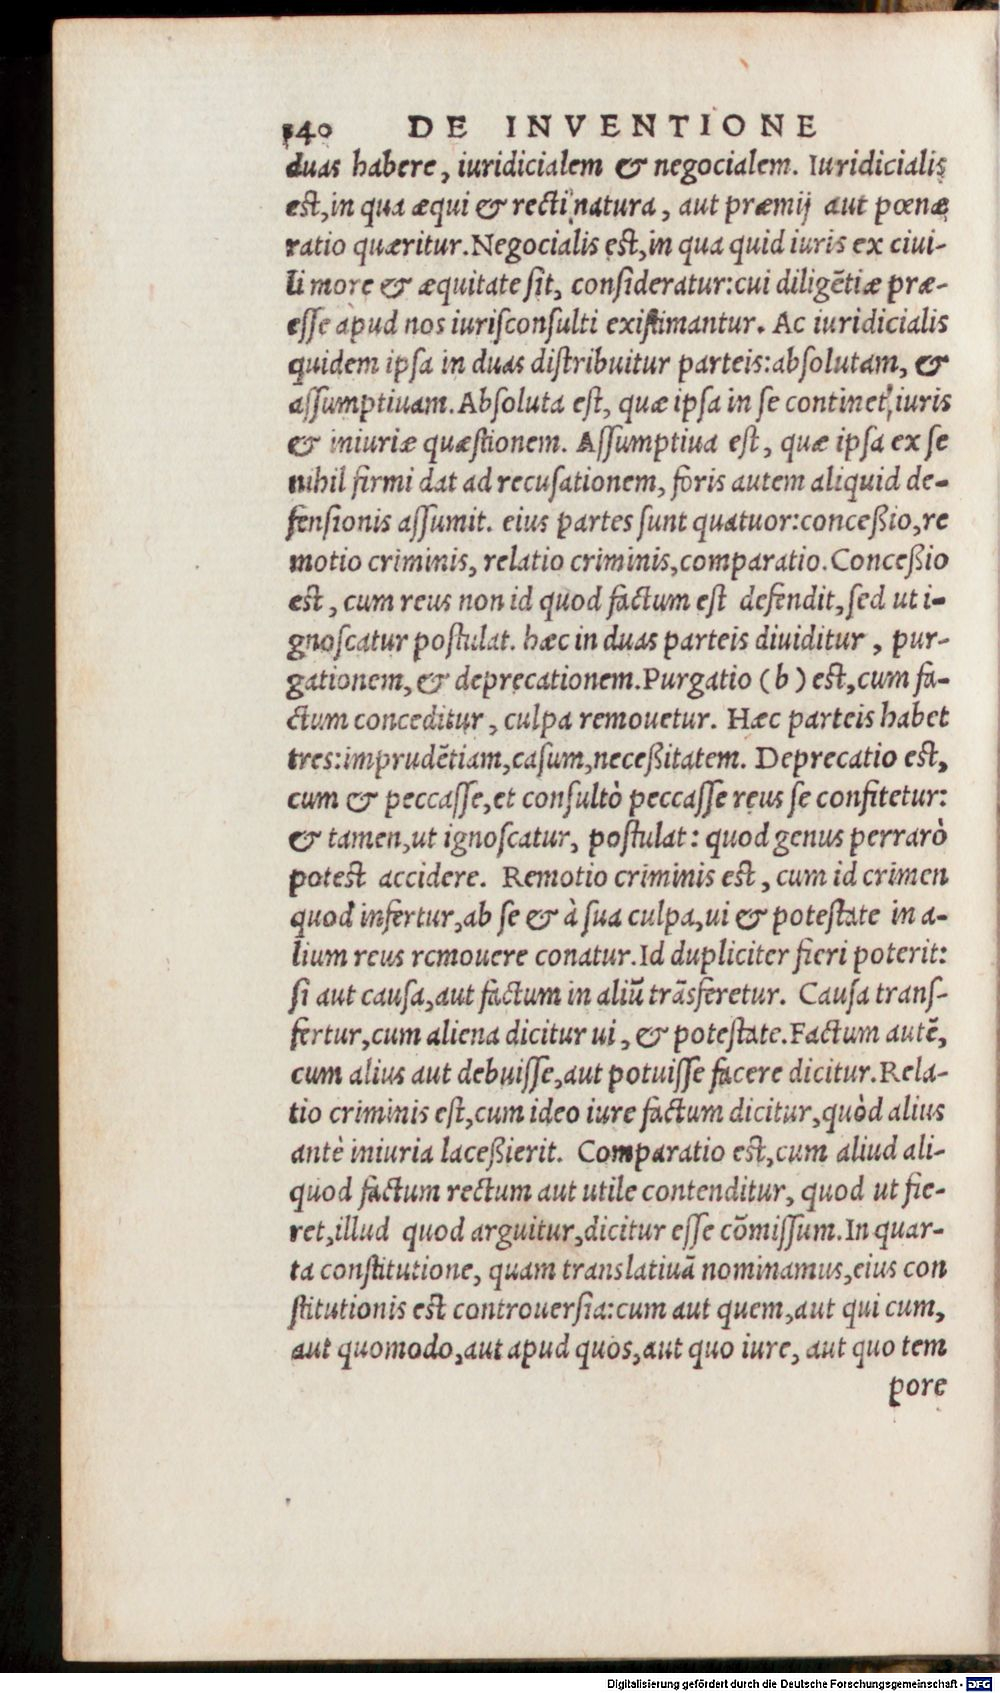 140 DE INVENTIONE
duas habere, iuridicialem & negocialem. Iuridicialis
est, in qua æqui & recti natura, aut præmij aut pœnæ
ratio quæritur. Negocialis est, in qua quid iuris ex ciui-
li more & æquitate ſit, conſideratur: cui diligẽtiæ præ-
eſſe apud nos iuriſconſulti exiſtimantur. Ac iuridicialis
quidem ipſa in duas diſtribuitur parteis: abſolutam, &
aſſumptiuam. Abſoluta est, quæ ipſa in ſe continet, iuris
& iniuriæ quæſtionem. Aſſumptiua est, quæ ipſa ex ſe
nihil firmi dat ad recuſationem, foris autem aliquid de-
fenſionis aſſumit. eius partes ſunt quatuor: conceßio, re
motio criminis, relatio criminis, comparatio. Conceßio
est, cum reus non id quod factum est defendit, ſed ut i-
gnoſcatur poſtulat. hæc in duas parteis diuiditur, pur-
gationem, & deprecationem. Purgatio (b) est, cum fa-
ctum conceditur, culpa remouetur. Hæc parteis habet
tres: imprudẽtiam, caſum, neceßitatem. Deprecatio est,
cum & peccaſſe, et conſultò peccaſſe reus ſe confitetur:
& tamen, ut ignoſcatur, poſtulat: quod genus perrarò
potest accidere. Remotio criminis est, cum id crimen
quod infertur, ab ſe & à ſua culpa, ui & poteſtate in a-
lium reus remouere conatur. Id dupliciter fieri poterit:
ſi aut cauſa, aut factum in aliũ trãsferetur. Cauſa tranſ-
fertur, cum aliena dicitur ui, & poteſtate. Factum autẽ,
cum alius aut debuiſſe, aut potuiſſe facere dicitur. Rela-
tio criminis est, cum ideo iure factum dicitur, quòd alius
antè iniuria laceßierit. Comparatio est, cum aliud ali-
quod factum rectum aut utile contenditur, quod ut fie-
ret, illud quod arguitur, dicitur eſſe cõmiſſum. In quar-
ta conſtitutione, quam translatiuã nominamus, eius con
ſtitutionis est controuerſia: cum aut quem, aut qui cum,
aut quomodo, aut apud quos, aut quo iure, aut quo tem
pore
Digitalisierung gefördert durch die Deutsche Forschungsgemeinschaft - DFG